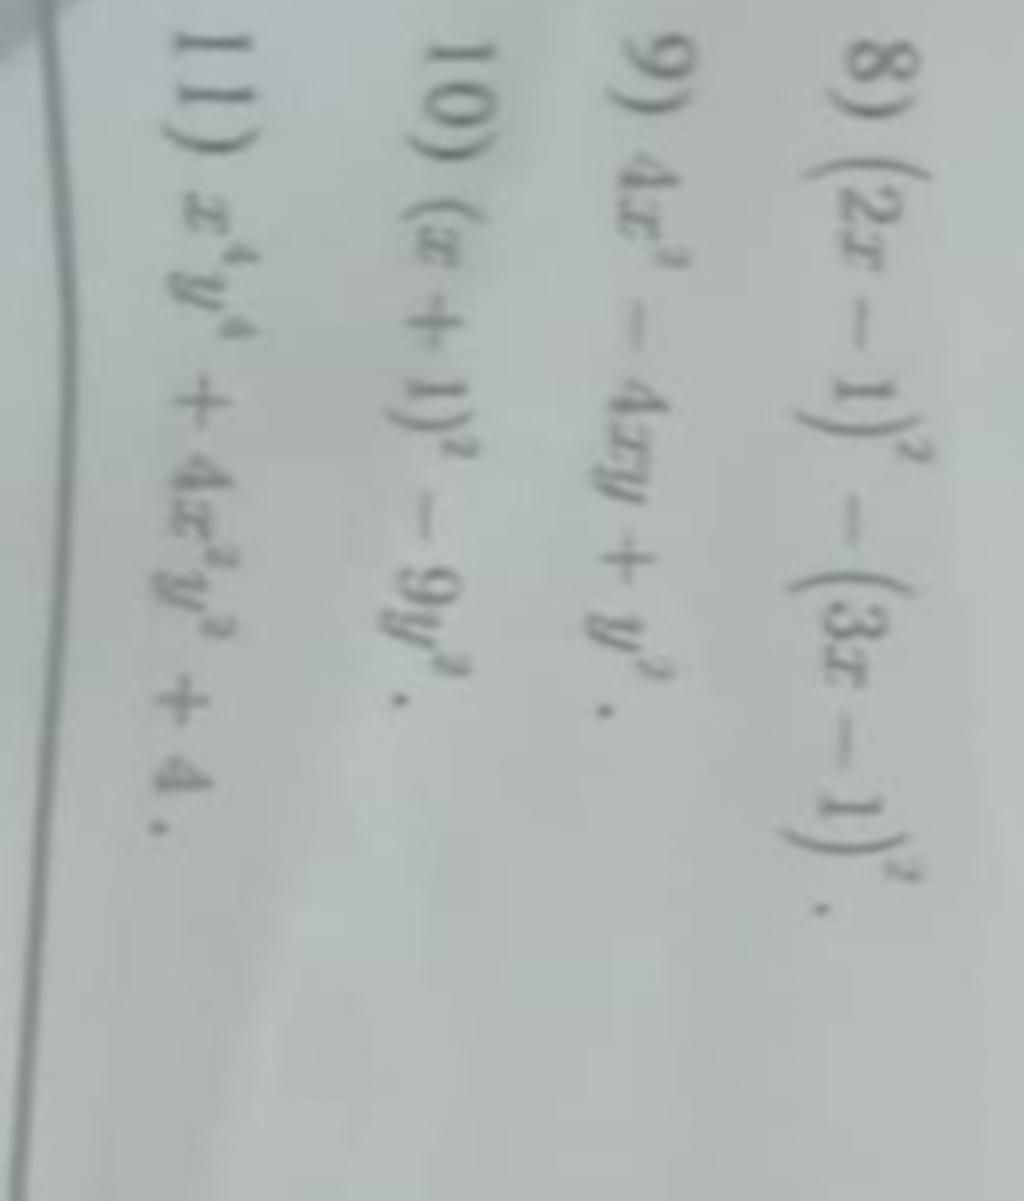 8) (2x − 1)² − (3x − 1)².
9) 4x² − 4xy + y².
10) (x + 1)² − 9y².
11) x⁴y⁴ + 4x²y² + 4.